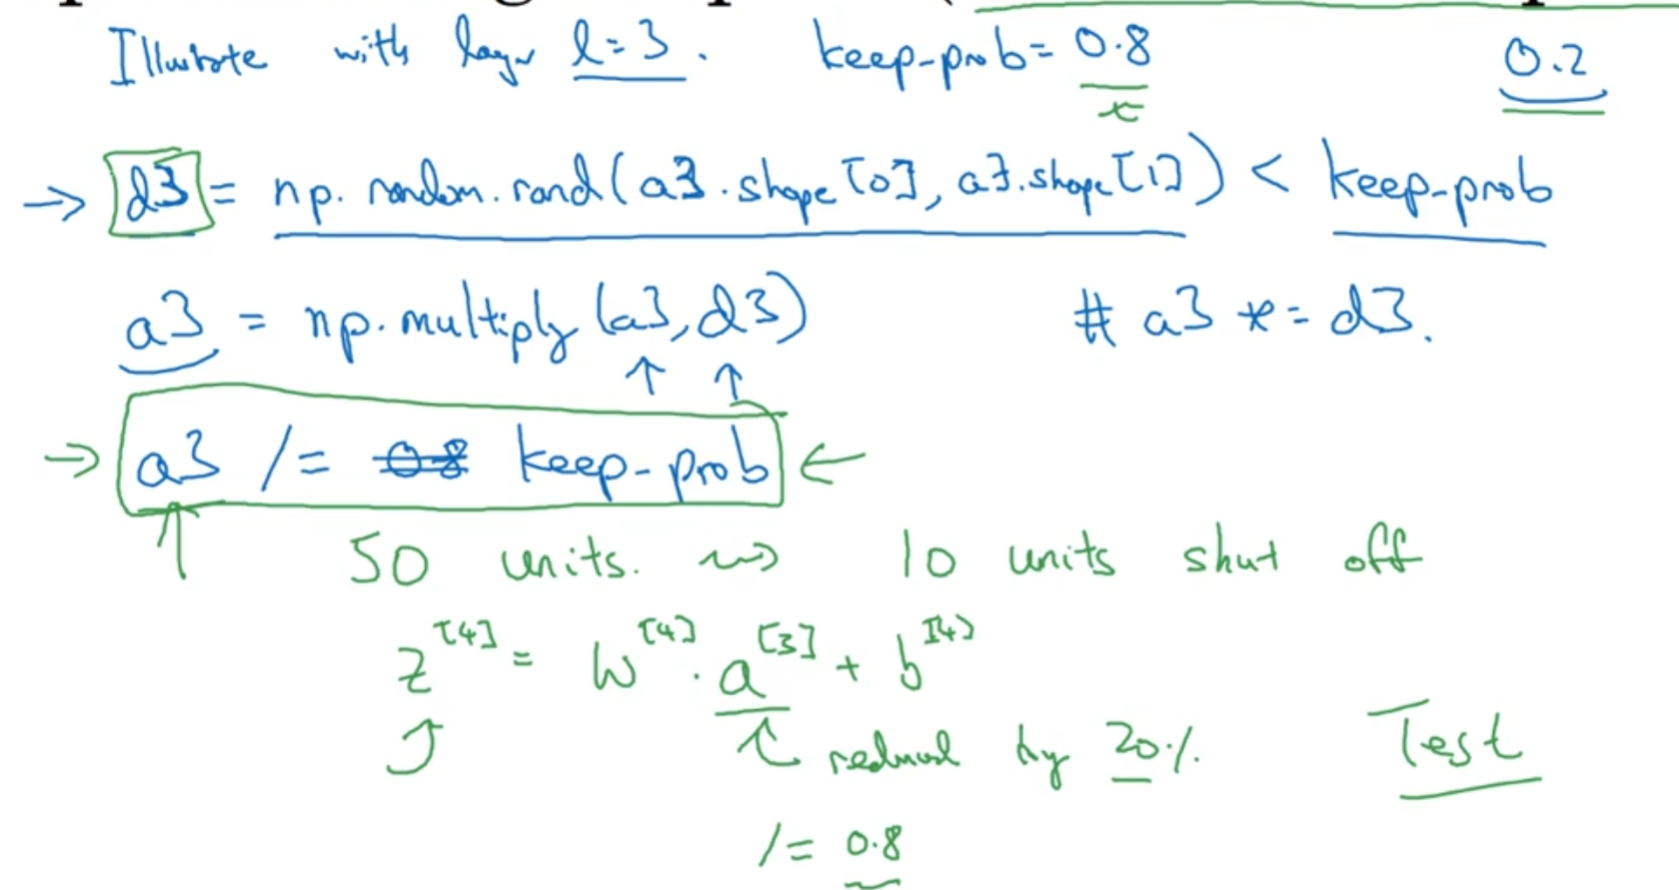 Illustrate with layer l=3. keep-prob= 0.8 0.2
d3 = np.random.rand(a3.shape[0], a3.shape[1]) < keep-prob
a3 = np.multiply(a3,d3) # a3 *= d3.
a3 /= 0.8 keep-prob
50 units. 10 units shut off
z[4] = W[4] . a[3] + b[4]
reduced by 20%.
Test
/= 0.8